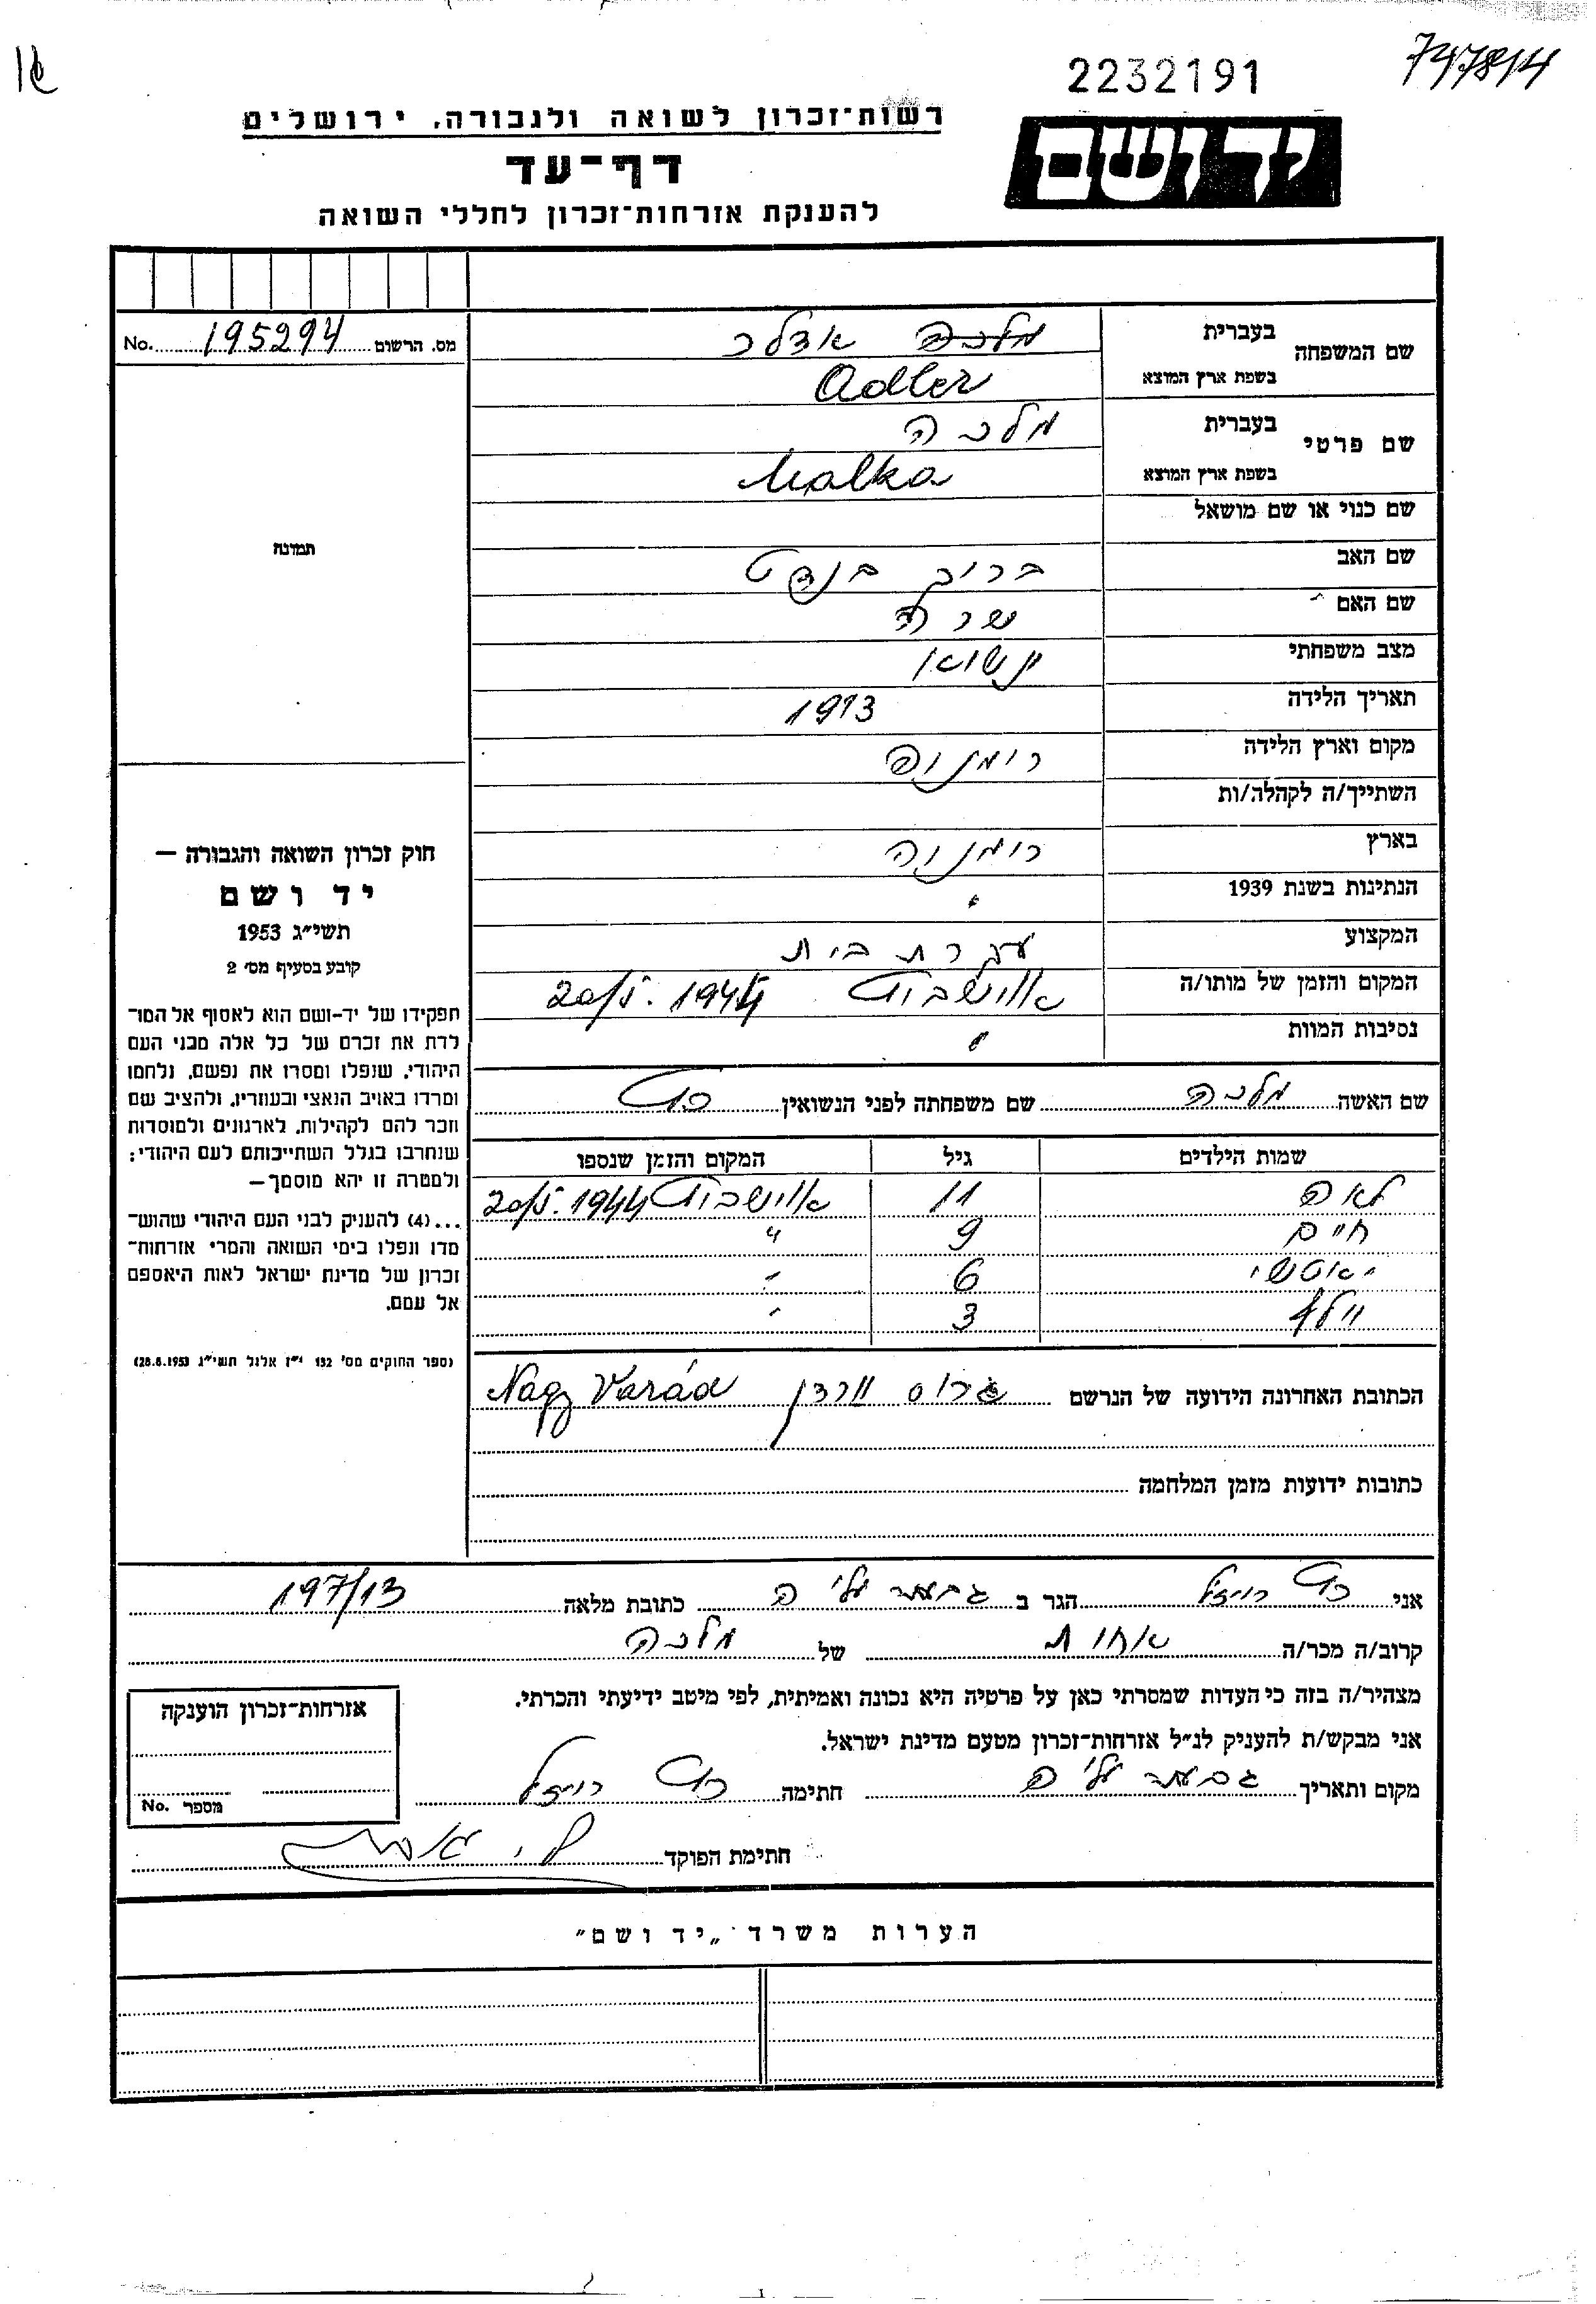 2232191
747814
רשות־זכרון לשואה ולגבורה, ירושלים
יד ושם
דף־עד
להענקת אזרחות־זכרון לחללי השואה
מס. הרשום 195294 No.
תמונה
חוק זכרון השואה והגבורה —
יד ושם
תשי״ג 1953
קובע בסעיף מס׳ 2
תפקידו של יד-ושם הוא לאסוף אל המו־
לדת את זכרם של כל אלה מבני העם
היהודי, שנפלו ומסרו את נפשם, נלחמו
ומרדו באויב הנאצי ובעוזריו, ולהציב שם
וזכר להם לקהילות, לארגונים ולמוסדות
שנחרבו בגלל השתייכותם לעם היהודי:
ולמטרה זו יהא מוסמך—
...(4) להעניק לבני העם היהודי שהוש־
מדו ונפלו בימי השואה והמרי אזרחות־
זכרון של מדינת ישראל לאות היאספם
אל עמם.
(ספר החוקים מס׳ 132 י״ז אלול תשי״ג 28.8.1953)
שם המשפחה בעברית מלכה אדלר
בשפת ארץ המוצא Adler
שם פרטי בעברית מלכה
בשפת ארץ המוצא Malka
שם כנוי או שם מושאל
שם האב ברוך בנדט
שם האם שרה
מצב משפחתי נשואה
תאריך הלידה 1913
מקום וארץ הלידה רומניה
השתייך/ה לקהלה/ות
בארץ רומניה
הנתינות בשנת 1939 "
המקצוע עקרת בית
המקום והזמן של מותו/ה אוישביץ 20/5.1944
נסיבות המוות "
שם האשה מלכה שם משפחתה לפני הנשואין
שמות הילדים גיל המקום והזמן שנספו
לאה 11 אוישביץ 20/5.1944
חיים 9 "
יאטשי 6 "
3 "
הכתובת האחרונה הידועה של הנרשם גרוס ורדן Nagy Várad
כתובות ידועות מזמן המלחמה
אני רוייזל הגר ב גבעת עליה כתובת מלאה 197/13
קרוב/ה מכר/ה אחות של מלכה
מצהיר/ה בזה כי העדות שמסרתי כאן על פרטיה היא נכונה ואמיתית, לפי מיטב ידיעתי והכרתי.
אני מבקש/ת להעניק לנ״ל אזרחות־זכרון מטעם מדינת ישראל.
מקום ותאריך גבעת עליה חתימה רוייזל
חתימת הפוקד
אזרחות־זכרון הוענקה
מספר No.
הערות משרד „יד ושם״